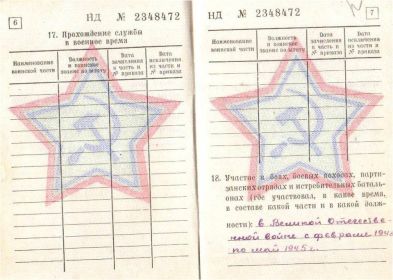 6
НД № 2348472
17. Прохождение службы
в военное время
Наименование воинской части
Должность и воинское звание по штату
Дата зачисления в часть и № приказа
Дата исключения из части и № приказа
НД № 2348472
7
Наименование воинской части
Должность и воинское звание по штату
Дата зачисления в часть и № приказа
Дата исключения из части и № приказа
18. Участие в боях, боевых походах, парти-
занских отрядах и истребительных баталь-
онах (где участвовал, в какое время,
в составе какой части и в какой долж-
ности): в Великой Отечестве-
нной войне с февраля
по май 1945 г.